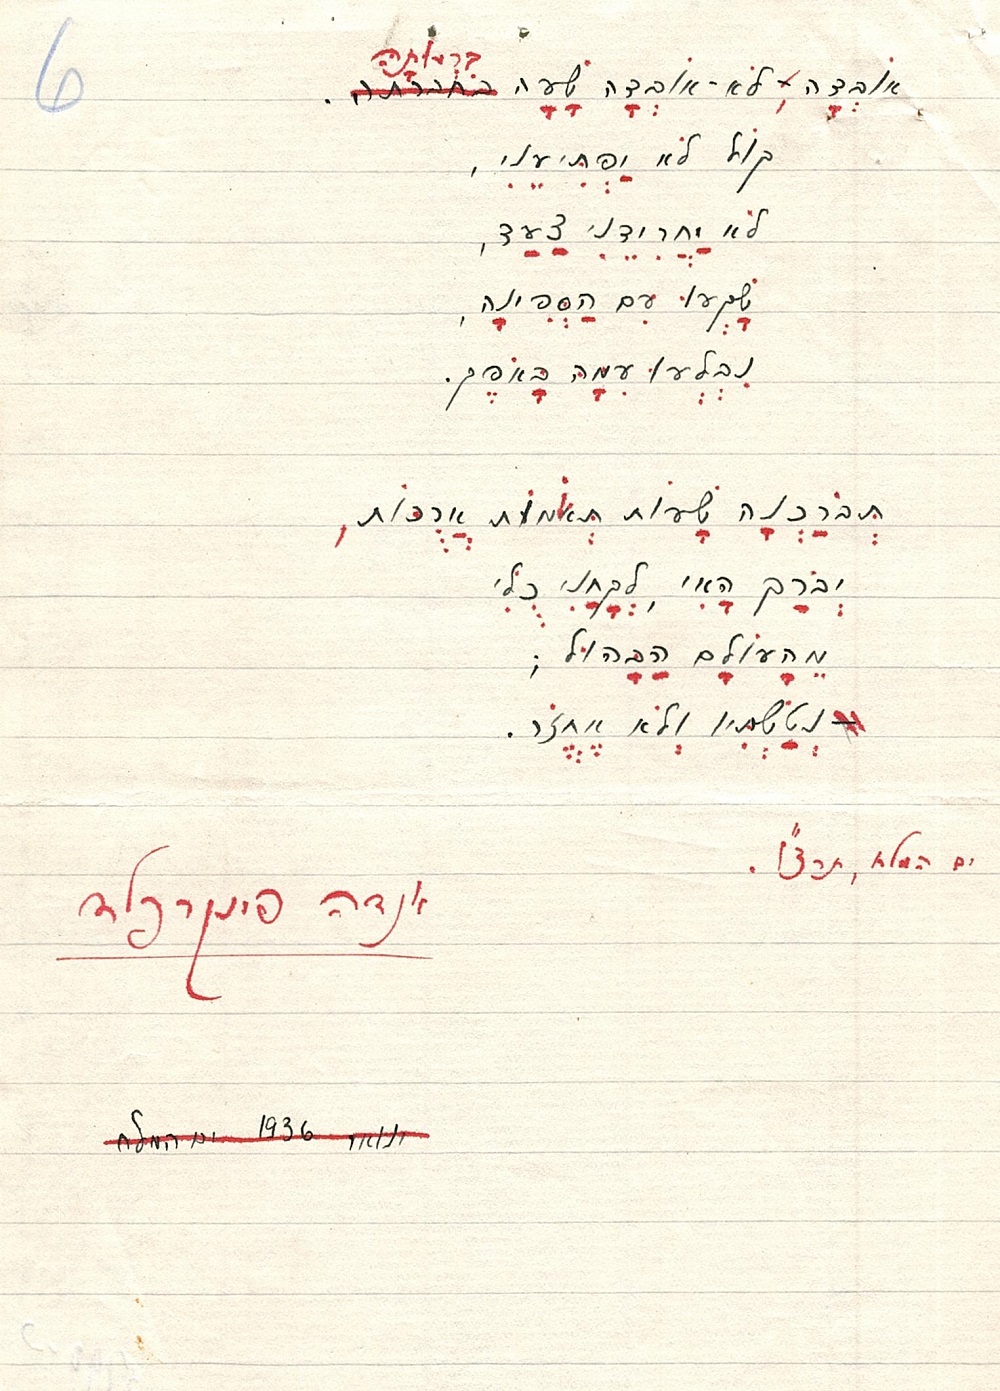 6
ברמתה
אוֹבְדָה, לֹא-אוֹבְדָה שָׁעָה בחברתה.
קוֹל לֹא יַפְתִּיעֵנִי,
לֹא יַחֲרִידֵנִי צַעַד,
שָׁקְעוּ עִם הַסְּפִינָה,
נִבְלְעוּ עִמָּהּ בָּאֹפֶק.
תְּבֹרַכְנָה שָׁעוֹת תְּאוֹמוֹת אֲרֻכּוֹת,
יְבֹרַךְ הָאִי, לְקָחַנִי כֻלִּי
מֵהָעוֹלָם הַבָּהוּל;
נְטַשְׁתִּיו וְלֹא אֶחֱזֹר.
ים המלח, תרצ"ו.
אנדה פינקרפלד
ינואר 1936 ים המלח